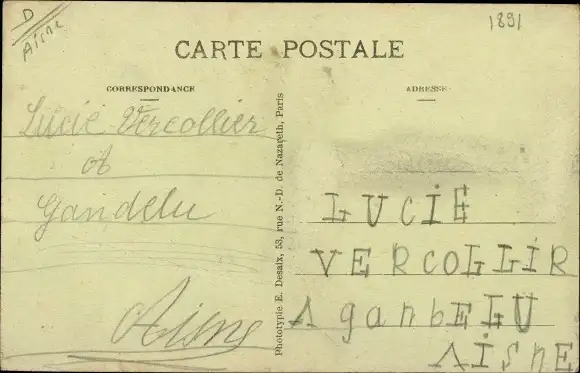 D
Aisne
1891
CARTE POSTALE
CORRESPONDANCE
ADRESSE
Lucie Vercollier
à
Gandelu
Aisne
Phototypie E. Desaix, 53, rue N.-D. de Nazareth, Paris
LUCIE
VERCOLLIR
A ganbELU
AiSNE